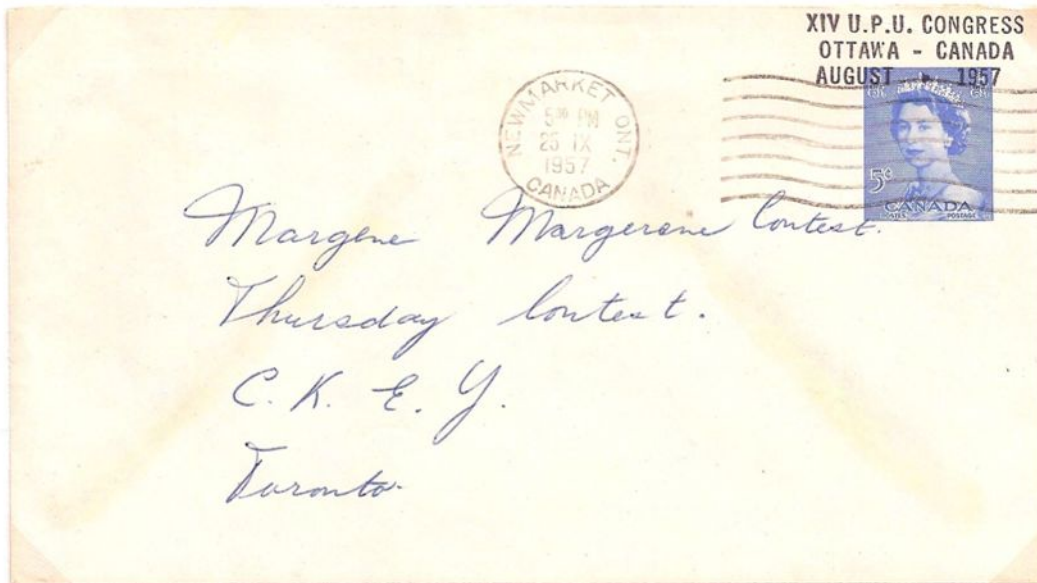 XIV U.P.U. CONGRESS
OTTAWA - CANADA
AUGUST 1957
NEWMARKET ONT.
5 PM
25 IX
1957
CANADA
5¢
CANADA
POSTES POSTAGE
Margene Margerene Contest.
Thursday Contest.
C. K. E. Y.
Toronto.